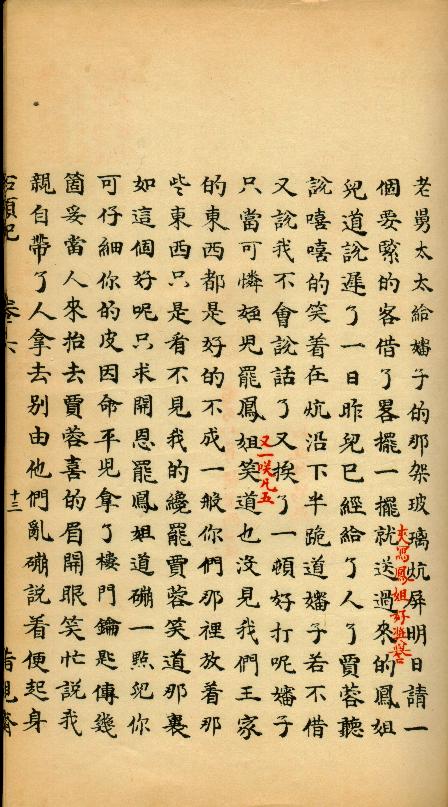 老舅太太給嬸子的那架玻璃炕屏明日請一
個要緊的客借了畧擺一擺就送過來的鳳姐
夾寫鳳姐好遊
兒道說遲了一日昨兒已經給了人了賈蓉聽
說嘻嘻的笑着在炕沿下半跪道嬸子若不借
又說我不會說話了又挨了一頓好打呢嬸子
又一笑凡五
只當可憐姪兒罷鳳姐笑道也沒見我們王家
的東西都是好的不成一般你們那裡放着那
些東西只是看不見我的纔罷賈蓉笑道那裏
如這個好呢只求開恩罷鳳姐道磞一點兒你
可仔細你的皮因命平兒拿了樓門鑰匙傳幾
箇妥當人來抬去賈蓉喜的眉開眼笑忙說我
親自帶了人拿去別由他們亂磞說着便起身
石頭記 卷六 十三